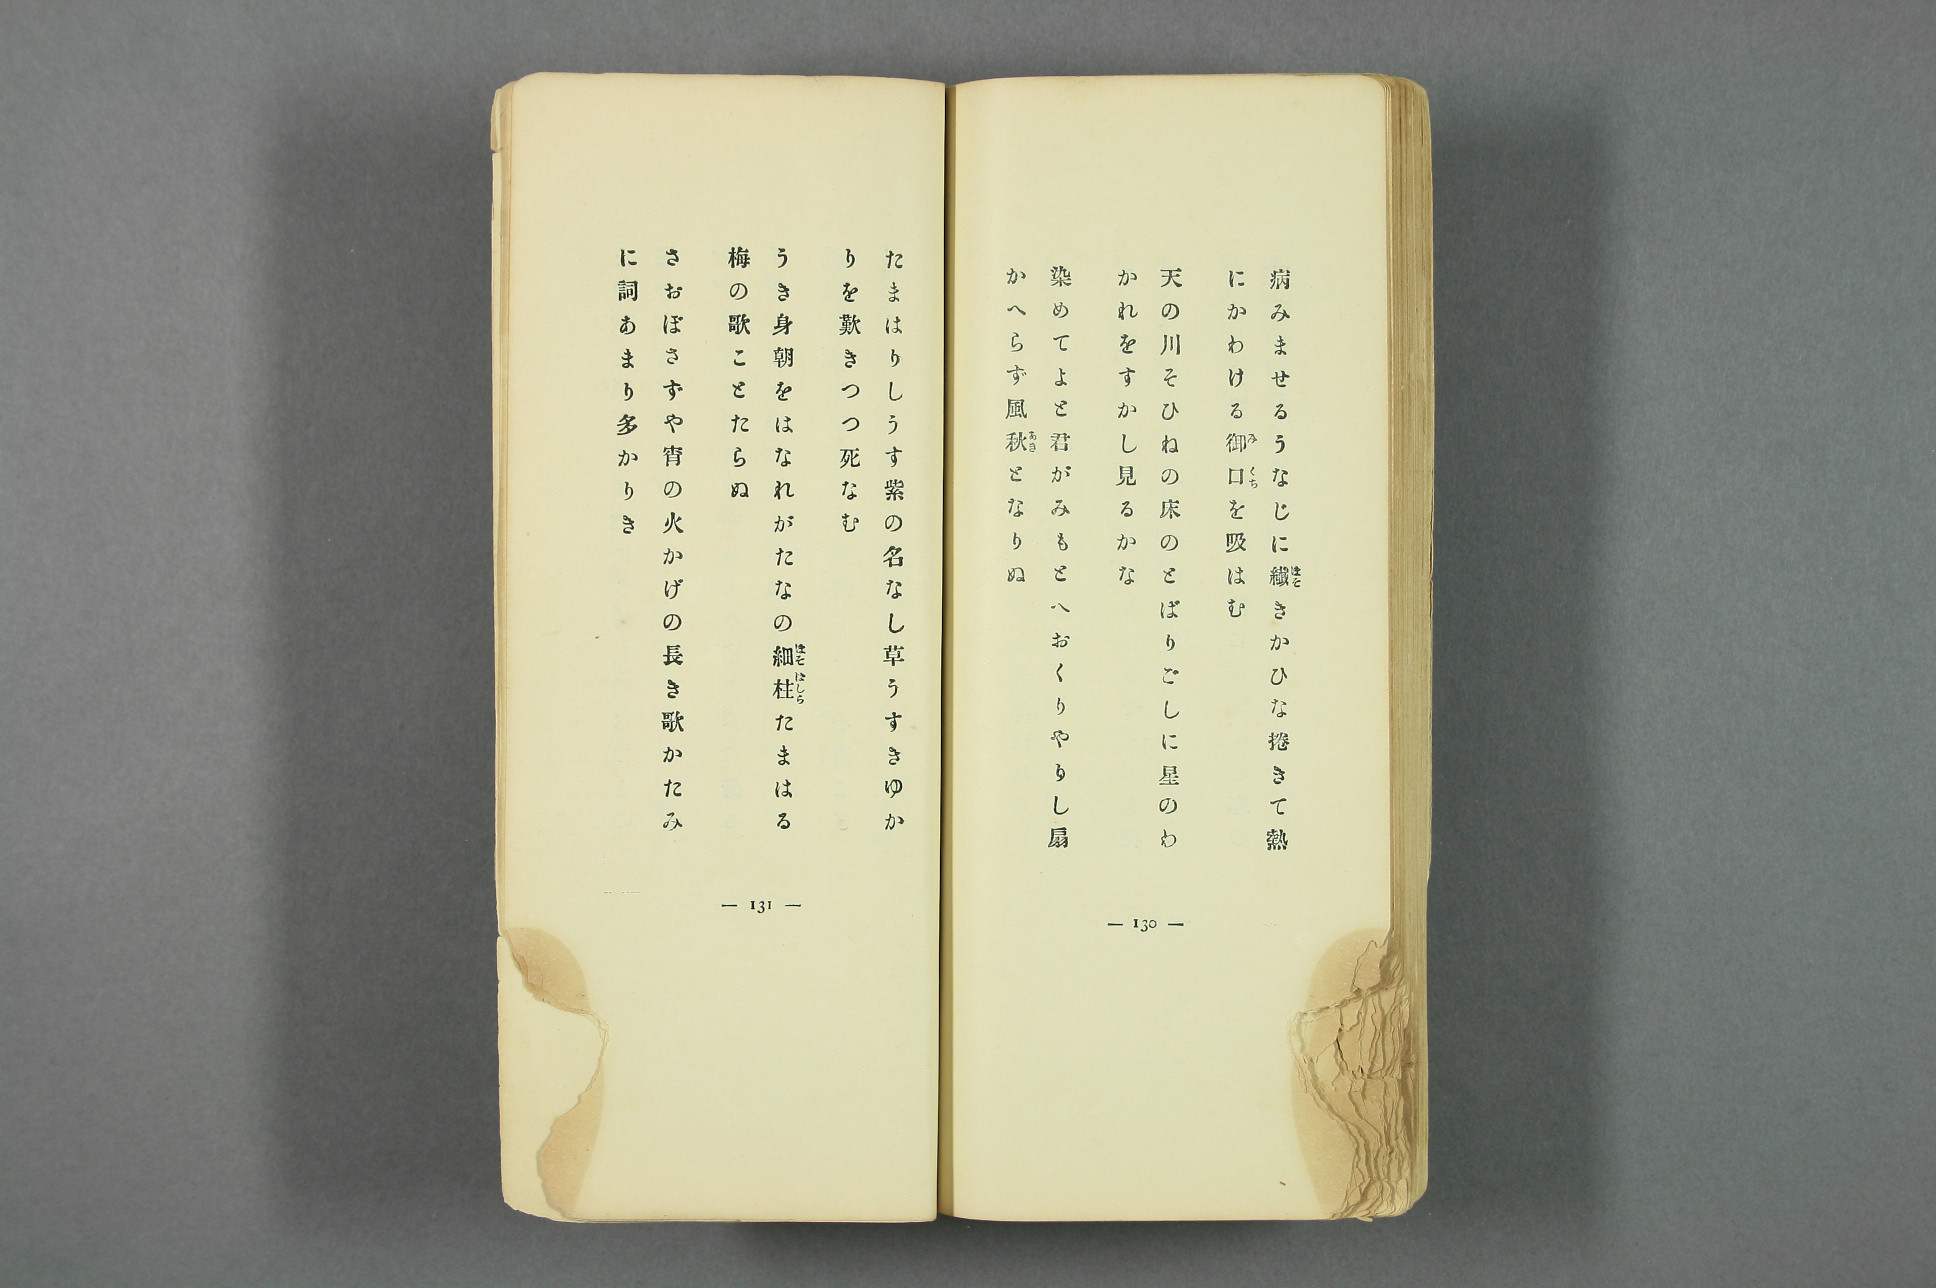 病みませるうなじに纎きかひな捲きて熱
にかわける御口を吸はむ
天の川そひねの床のとばりごしに星のわ
かれをすかし見るかな
染めてよと君がみもとへおくりやりし扇
かへらず風秋となりぬ
— 130 —
たまはりしうす紫の名なし草うすきゆか
りを歎きつつ死なむ
うき身朝をはなれがたなの細柱たまはる
梅の歌ことたらぬ
さおぼさずや宵の火かげの長き歌かたみ
に詞あまり多かりき
— 131 —